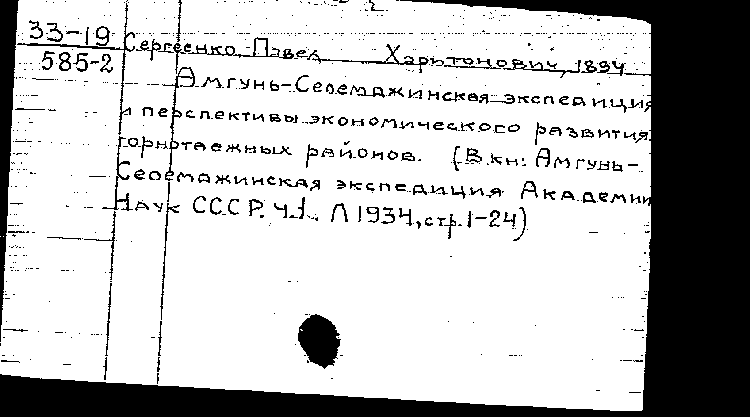 33-19
585-2
Сергеенко, Павел Харитонович, 1894
Амгунь-Селемджинская экспедиция
и перспективы экономического развития
горнотаежных районов. (В кн: Амгунь-
Селемджинская экспедиция Академии
Наук СССР. Ч.1. Л 1934, стр. 1-24)